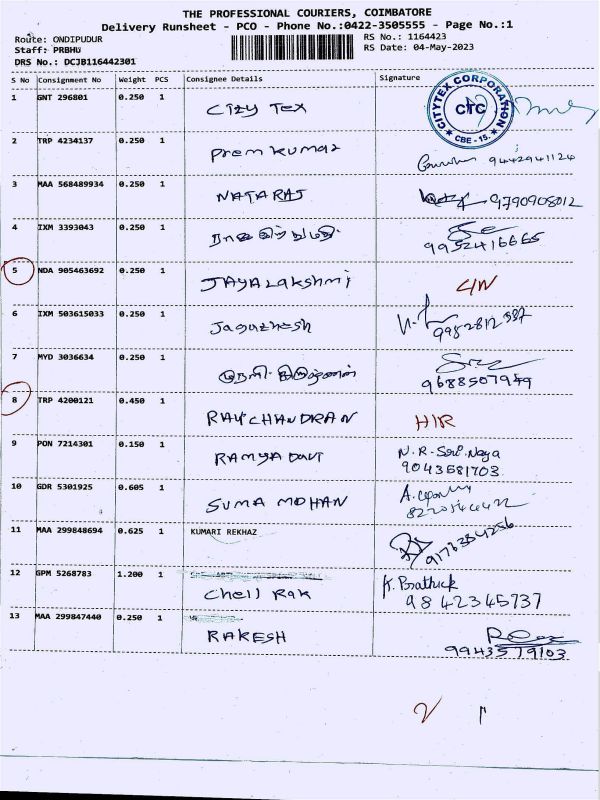 THE PROFESSIONAL COURIERS, COIMBATORE
Delivery Runsheet - PCO - Phone No.:0422-3505555 - Page No.:1
Route: ONDIPUDUR
RS No.: 1164423
Staff: PRBHU
RS Date: 04-May-2023
DRS No.: DCJB116442301
S No Consignment No Weight PCS Consignee Details Signature
1 GNT 296801 0.250 1 City Tex
CITYTEX CORPORATION CTC CBE - 15.
2 TRP 4234137 0.250 1 Prem kumar 9442941124
3 MAA 568489934 0.250 1 NATARAJ 9790908012
4 IXM 3393043 0.250 1 9952416665
5 NDA 905463692 0.250 1 JAYALakshmi
6 IXM 503615033 0.250 1
7 MYD 3036634 0.250 1
8 TRP 4200121 0.450 1 RAVICHANDRAN
9 PON 7214301 0.150 1 RAMYA DAVI
9043581703
10 GDR 5301925 0.605 1 SUMA MOHAN
11 MAA 299848694 0.625 1 KUMARI REKHAZ 9176384256
12 GPM 5268783 1.200 1 K. Prathick
9842345737
13 MAA 299847440 0.250 1 RAKESH
9943579103